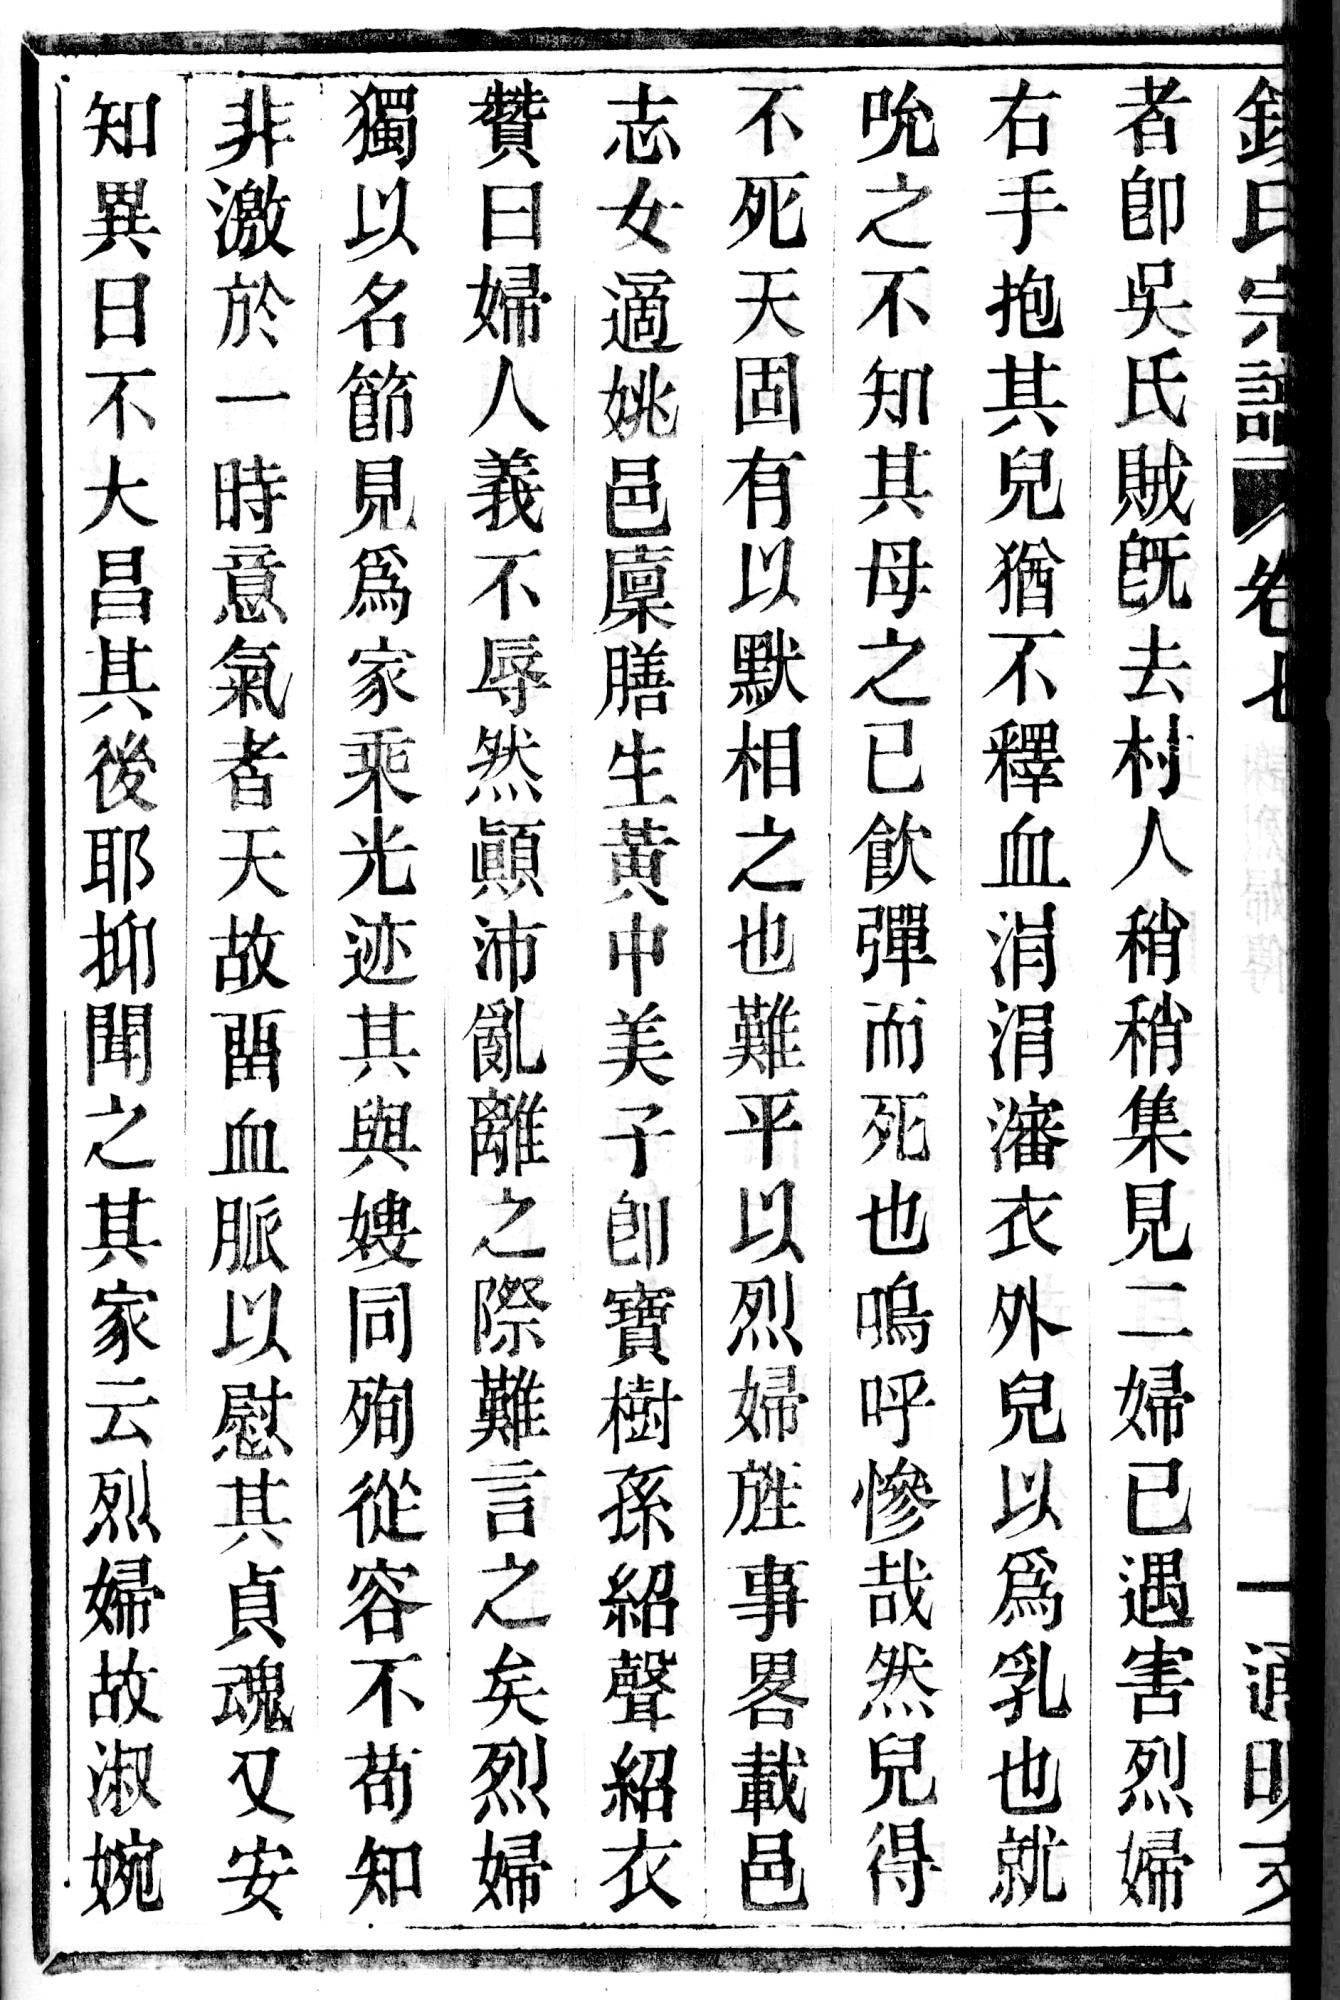 氏宗譜 卷七 一 通明
者卽吳氏賊旣去村人稍稍集見二婦已遇害烈婦
右手抱其兒猶不釋血涓涓瀋衣外兒以爲乳也就
吮之不知其母之已飮彈而死也嗚呼慘哉然兒得
不死天固有以默相之也難平以烈婦旌事畧載邑
志女適姚邑廩膳生黃中美子卽寶樹孫紹聲紹衣
贊曰婦人義不辱然顚沛亂離之際難言之矣烈婦
獨以名節見爲家乘光迹其與嫂同殉從容不苟知
非激於一時意氣者天故畱血脈以慰其貞魂又安
知異日不大昌其後耶抑聞之其家云烈婦故淑婉